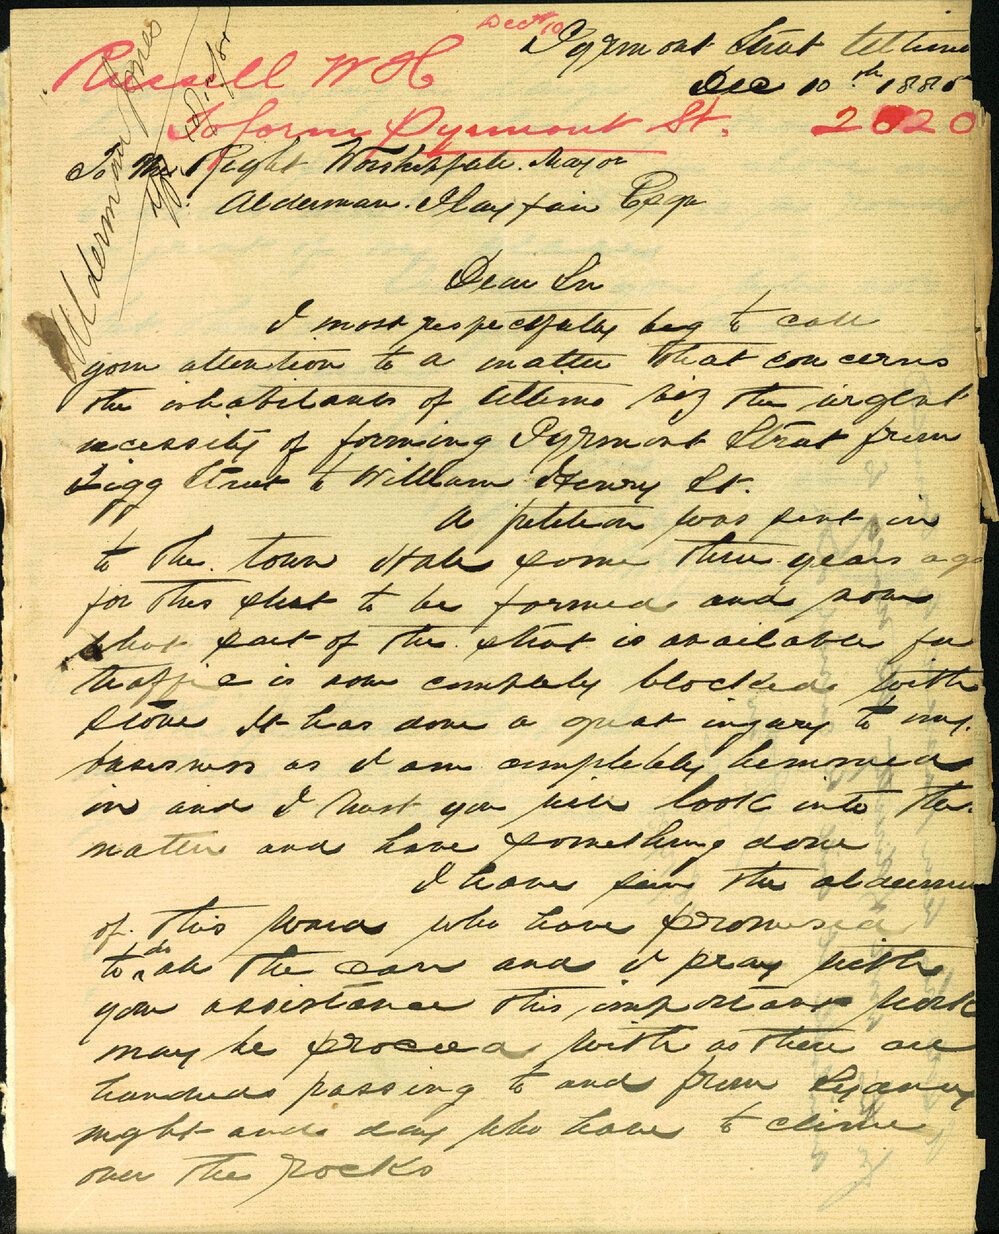 Decr 10
Pyrmont Street Ultimo
Russell W H
Dec 10th 1885
To form Pyrmont St. 2020
Alderman Jones
To The Right Worshipfull. Mayor
Alderman. Playfair Esqr
Dear Sir
I most respectfully beg to call
your attention to a matter that concerns
the inhabitants of Ultimo viz the urgent
necessity of forming Pyrmont Street from
Figg Street to William Henry St.
A petition was sent in
to the. town Hall some three years ago
for this street to be formed and now
what part of the street is available for
traffic is now completely blocked with
stone It has done a great injury to my.
business as I am completely hemmed
in and I trust you will look into the.
matter and have something done
I have seen the aldermen
of. this ward who have promised
to do all the can and I pray with
your assistance this important work
may be proceed with as there are
hundreds passing to and from Sydney
night and day who have to climb
over the rocks